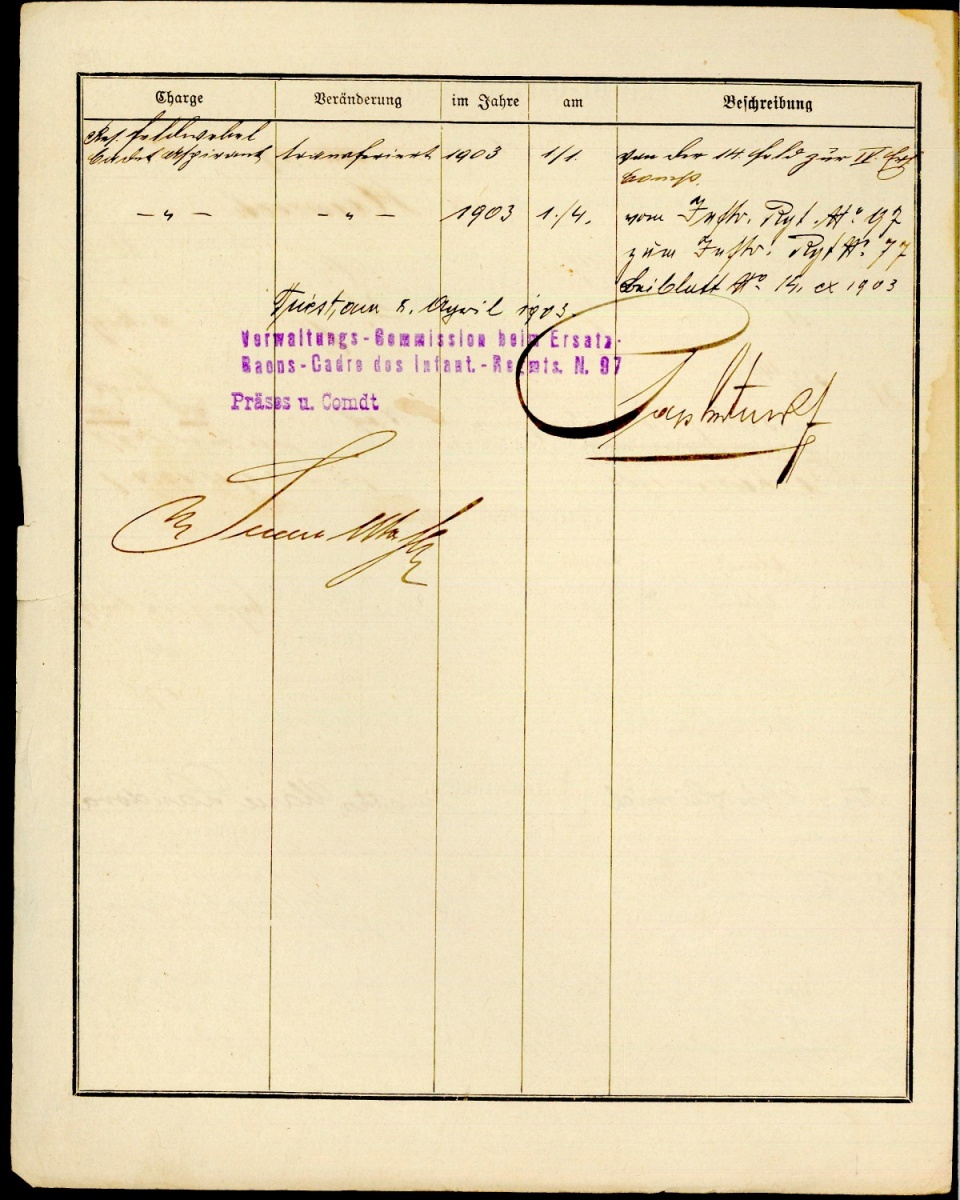 Charge Veränderung im Jahre am Beschreibung
Res. Feldwebel
Cadet Aspirant transferiert 1903 1/1. von der 14. Feld zur IV. Ers
Comp.
– „ – – „ – 1903 1./4. vom Inftr. Rgt. No. 97
zum Inftr. Rgt No. 77
Beiblatt No. 14. ex 1903
Triest, am 8. April 1903.
Verwaltungs-Commission beim Ersatz-
Baons-Cadre des Infant.-Regmts. N. 97
Präses u. Comdt